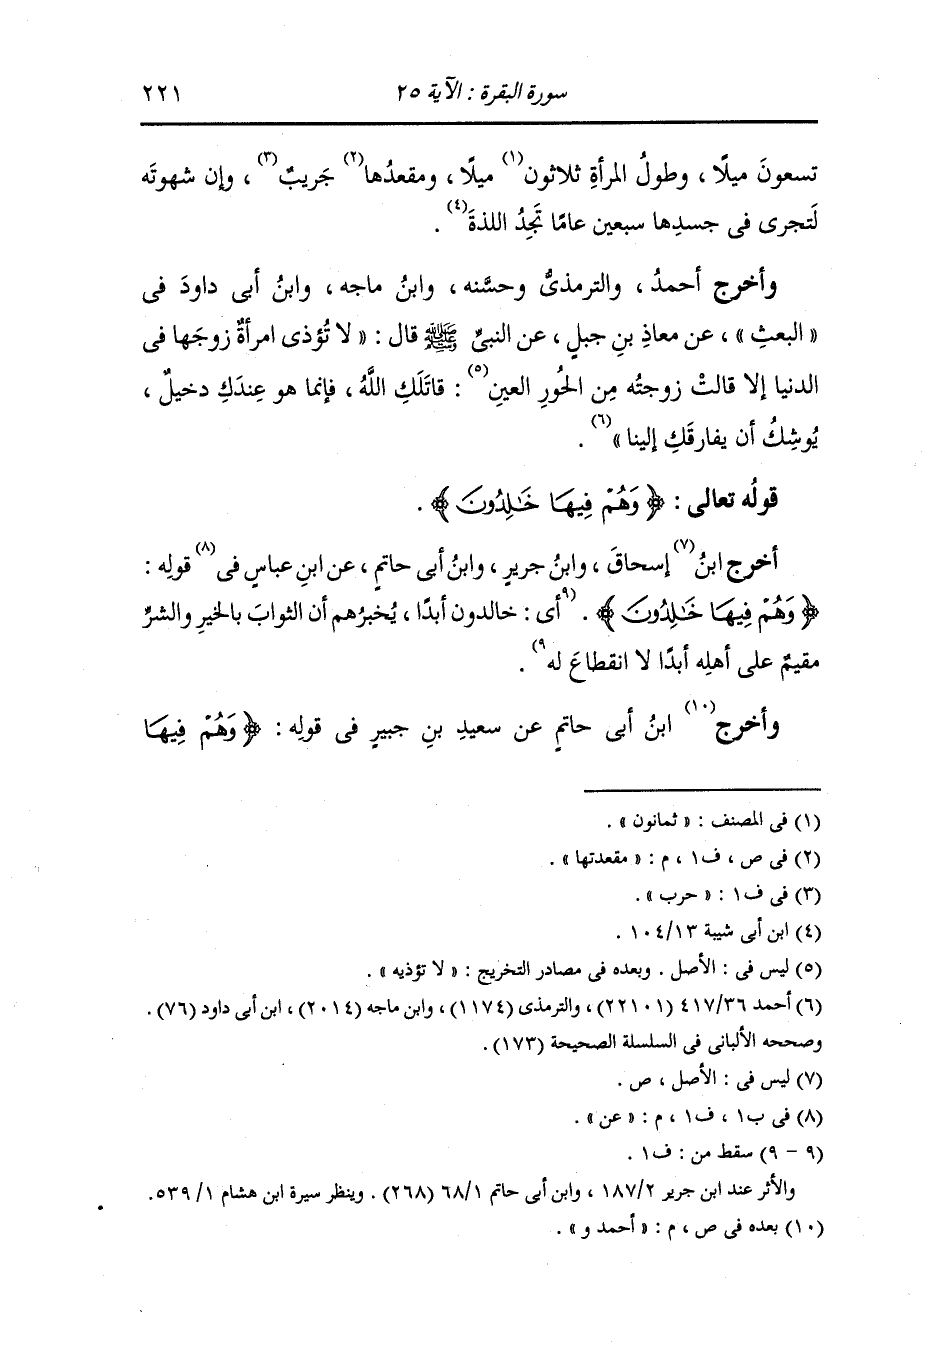 سورة البقرة : الآية ٢٥ ٢٢١
تسعونَ ميلًا ، وطولُ المرأةِ ثلاثون(١) ميلًا ، ومقعدُها(٢) جَريبٌ(٣) ، وإن شهوتَه
لَتجرى فى جسدِها سبعين عامًا تَجِدُ اللذةَ(٤) .
وأخرج أحمدُ ، والترمذىُّ وحسَّنه ، وابنُ ماجه ، وابنُ أبى داودَ فى
« البعثِ » ، عن معاذِ بنِ جبلٍ ، عن النبىِّ ﷺ قال : « لا تُؤذى امرأةٌ زوجَها فى
الدنيا إلا قالتْ زوجتُه مِن الحُورِ العينِ(٥) : قاتَلَكِ اللَّهُ ، فإنما هو عِندَكِ دخيلٌ ،
يُوشِكُ أن يفارقَكِ إلينا »(٦) .
قولُه تعالى : ﴿ وَهُمْ فِيهَا خَٰلِدُونَ ﴾ .
أخرج ابنُ(٧) إسحاقَ ، وابنُ جريرٍ ، وابنُ أبى حاتمٍ ، عن ابنِ عباسٍ فى(٨) قولِه :
﴿ وَهُمْ فِيهَا خَٰلِدُونَ ﴾ . (٩أى : خالدون أبدًا ، يُخبرُهم أن الثوابَ بالخيرِ والشرِّ
مقيمٌ على أهلِه أبدًا لا انقطاعَ له٩) .
وأخرج(١٠) ابنُ أبى حاتمٍ عن سعيدِ بنِ جبيرٍ فى قولِه : ﴿ وَهُمْ فِيهَا
(١) فى المصنف : « ثمانون » .
(٢) فى ص ، ف١ ، م : « مقعدتها » .
(٣) فى ف١ : « حرب » .
(٤) ابن أبى شيبة ١٠٤/١٣ .
(٥) ليس فى : الأصل . وبعده فى مصادر التخريج : « لا تؤذيه » .
(٦) أحمد ٤١٧/٣٦ (٢٢١٠١) ، والترمذى (١١٧٤) ، وابن ماجه (٢٠١٤) ، ابن أبى داود (٧٦) .
وصححه الألبانى فى السلسلة الصحيحة (١٧٣) .
(٧) ليس فى : الأصل ، ص .
(٨) فى ب١ ، ف١ ، م : « عن » .
(٩ - ٩) سقط من : ف١ .
والأثر عند ابن جرير ١٨٧/٢ ، وابن أبى حاتم ٦٨/١ (٢٦٨) . وينظر سيرة ابن هشام ١/ ٥٣٩.
(١٠) بعده فى ص ، م : « أحمد و » .